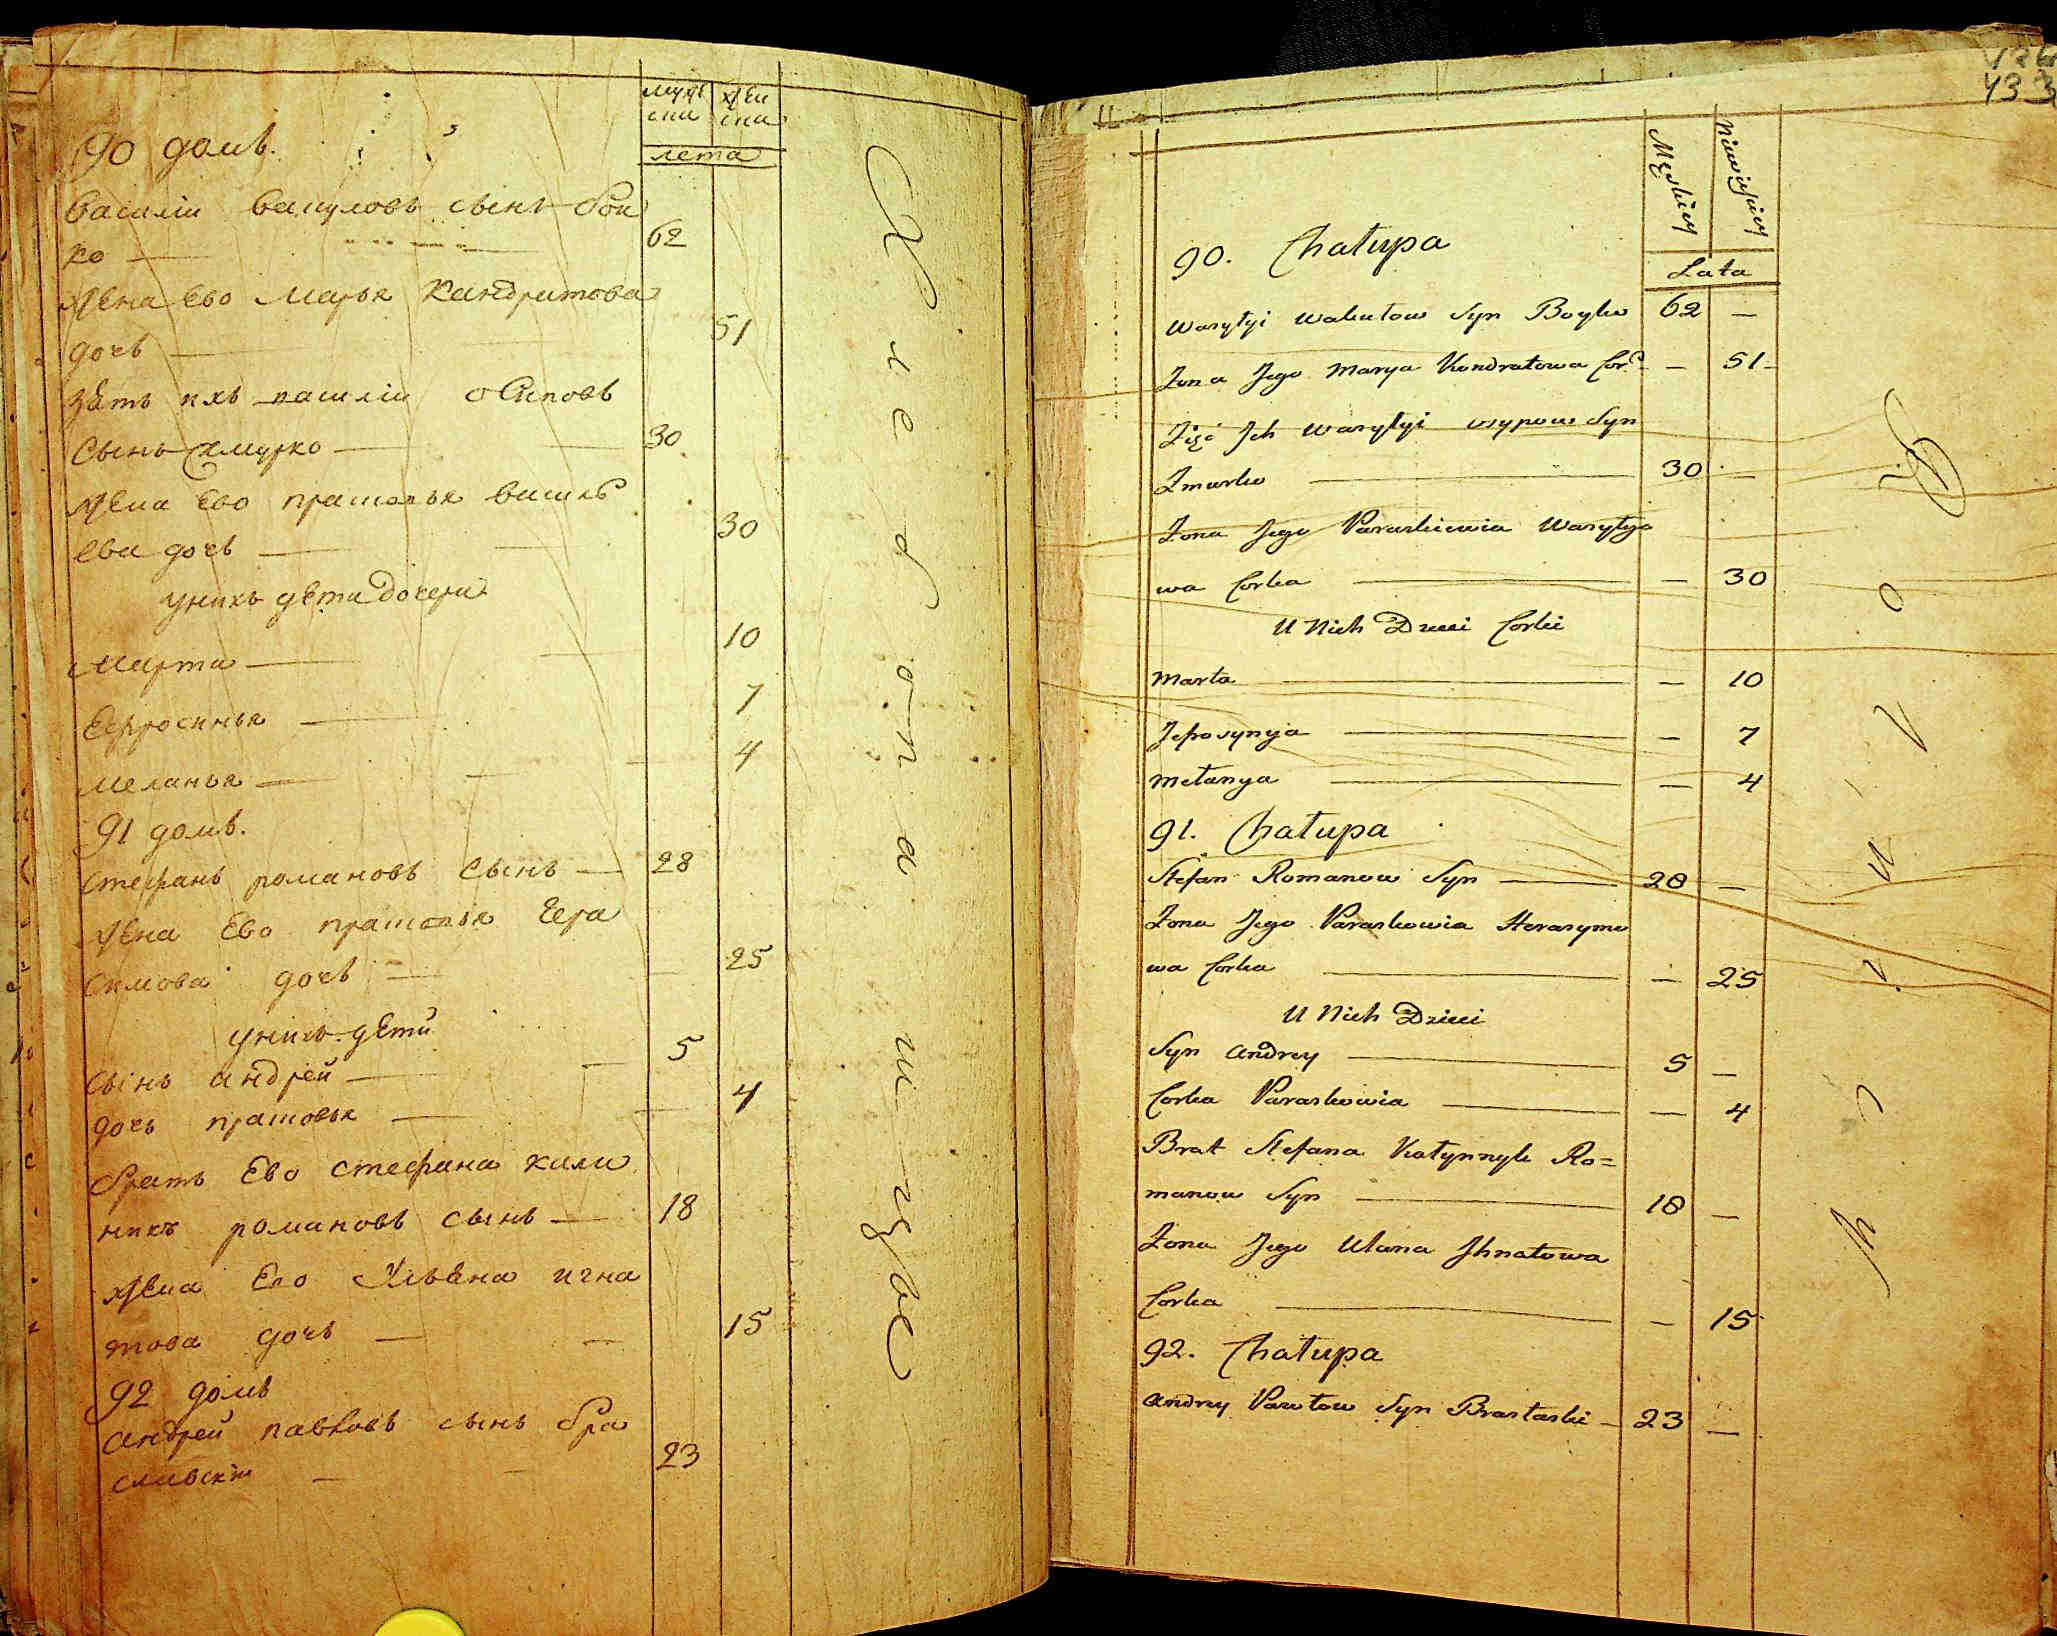 мужеска женска
лета
90 домъ.
Василіи Вакуловъ сынъ Бои
ко 62
жена Ево Марья Кандратова
дочь 51
зять ихъ василіи Осиповъ
сынъ Жмурко 30
жена Ево прасковья Василь
ева дочь 30
у нихъ дети дочери
Марта 10
Ефросинья 7
Меланья 4
91 домъ.
Стефанъ романовъ сынъ 28
жена Ево прасковья Гера
симова дочь 25
у нихъ дети
сынъ андрей 5
дочь прасковья 4
братъ Ево стефана кали
никъ романовъ сынъ 18
жена Его Ульяна игна
това дочь 15
92 домъ
андрей павловъ сынъ Бра
славскіи 23
Хлебопашцы
433
Męskiey Niewieściey
Lata
90. Chałupa
Wasylyi Wakułow Syn Boyko 62 —
Żona Jego Marya Kondratowa Cor. — 51
Zięć Ich Wasylyi Osypow Syn
Żmurko 30 —
Żona Jego Paraskiewia Wasyly
wa Corka — 30
U Nich Dzieci Corki
Marta — 10
Jefrosynya — 7
Mełanya — 4
91. Chałupa
Stefan Romanow Syn 28 —
Żona Jego Paraskowia Herasymo
wa Corka — 25
U Nich Dzieci
Syn Andrey 5 —
Corka Paraskowia — 4
Brat Stefana Kałynnyk Ro=
manow Syn 18 —
Żona Jego Ulana Ihnatowa
Corka — 15
92. Chałupa
Andrey Pawłow Syn Brasławski 23 —
Rolnicy